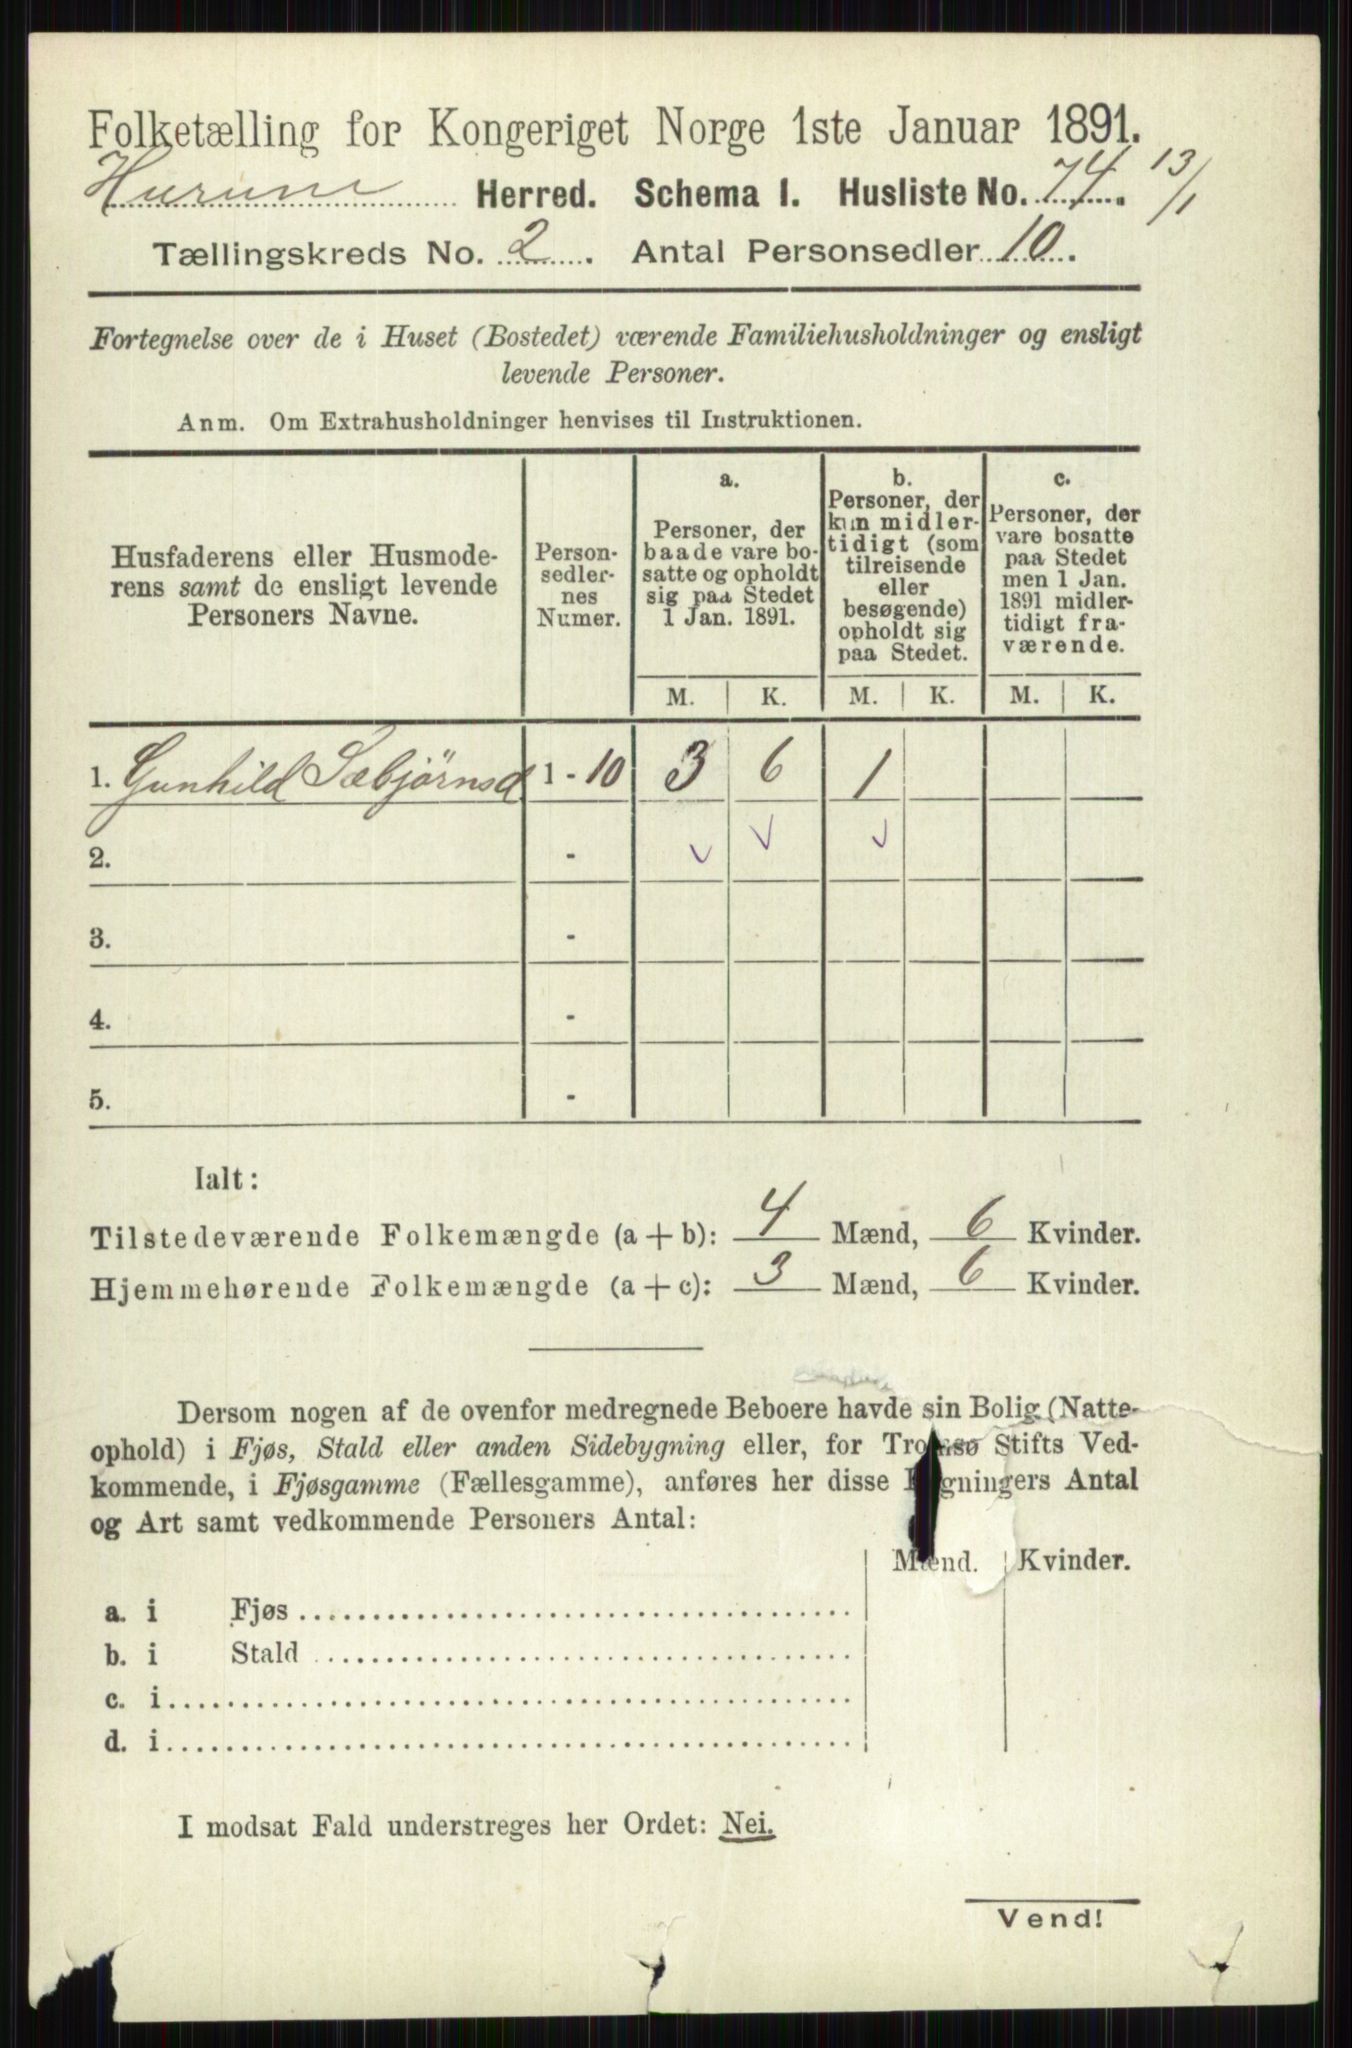 Folketælling for Kongeriget Norge 1ste Januar 1891.
Hurum Herred. Schema I. Husliste No. 74. 13/1
Tællingskreds No. 2. Antal Personsedler 10.
Fortegnelse over de i Huset (Bostedet) værende Familiehusholdninger og ensligt
levende Personer.
Anm. Om Extrahusholdninger henvises til Instruktionen.
Husfaderens eller Husmode-
rens samt de ensligt levende
Personers Navne.
Person-
sedler-
nes
Numer.
a.
Personer, der
baade vare bo-
satte og opholdt
sig paa Stedet
1 Jan. 1891.
b.
Personer, der
kun midler-
tidigt (som
tilreisende
eller
besøgende)
opholdt sig
paa Stedet.
c.
Personer, der
vare bosatte
paa Stedet
men 1 Jan.
1891 midler-
tidigt fra-
værende.
M. K. M. K. M. K.
1. Gunhild Sæbjörnsd 1 - 10 3 6 1
2. -
3. -
4. -
5. -
Ialt:
Tilstedeværende Folkemængde (a + b): 4 Mænd, 6 Kvinder.
Hjemmehørende Folkemængde (a + c): 3 Mænd, 6 Kvinder.
Dersom nogen af de ovenfor medregnede Beboere havde sin Bolig (Natte-
ophold) i Fjøs, Stald eller anden Sidebygning eller, for Tromsø Stifts Ved-
kommende, i Fjøsgamme (Fællesgamme), anføres her disse Bygningers Antal
og Art samt vedkommende Personers Antal:
Mænd. Kvinder.
a. i Fjøs
b. i Stald
c. i
d. i
I modsat Fald understreges her Ordet: Nei.
Vend!